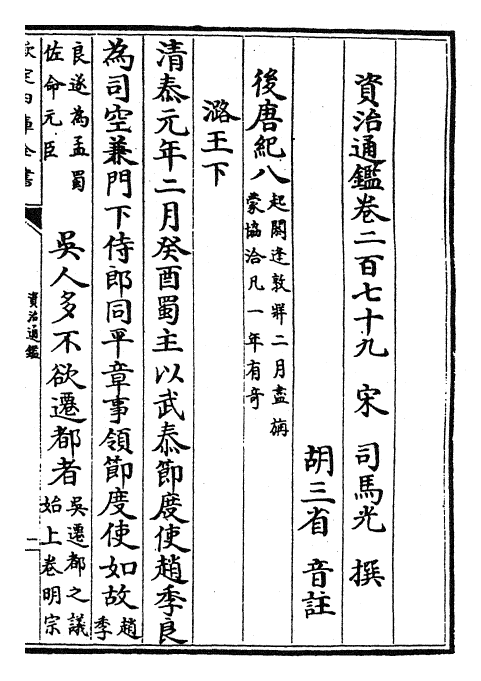 資治通鑑卷二百七十九 宋 司馬光 撰
胡三省 音註
後唐紀八 起閼逢敦牂二月盡旃蒙協洽凡一年有奇
潞王下
清泰元年二月癸酉蜀主以武泰節度使趙季良
為司空兼門下侍郎同平章事領節度使如故 趙季
良遂為孟蜀佐命元臣 吳人多不欲遷都者 吳遷都之議始上卷明宗
欽定四庫全書
資治通鑑
一